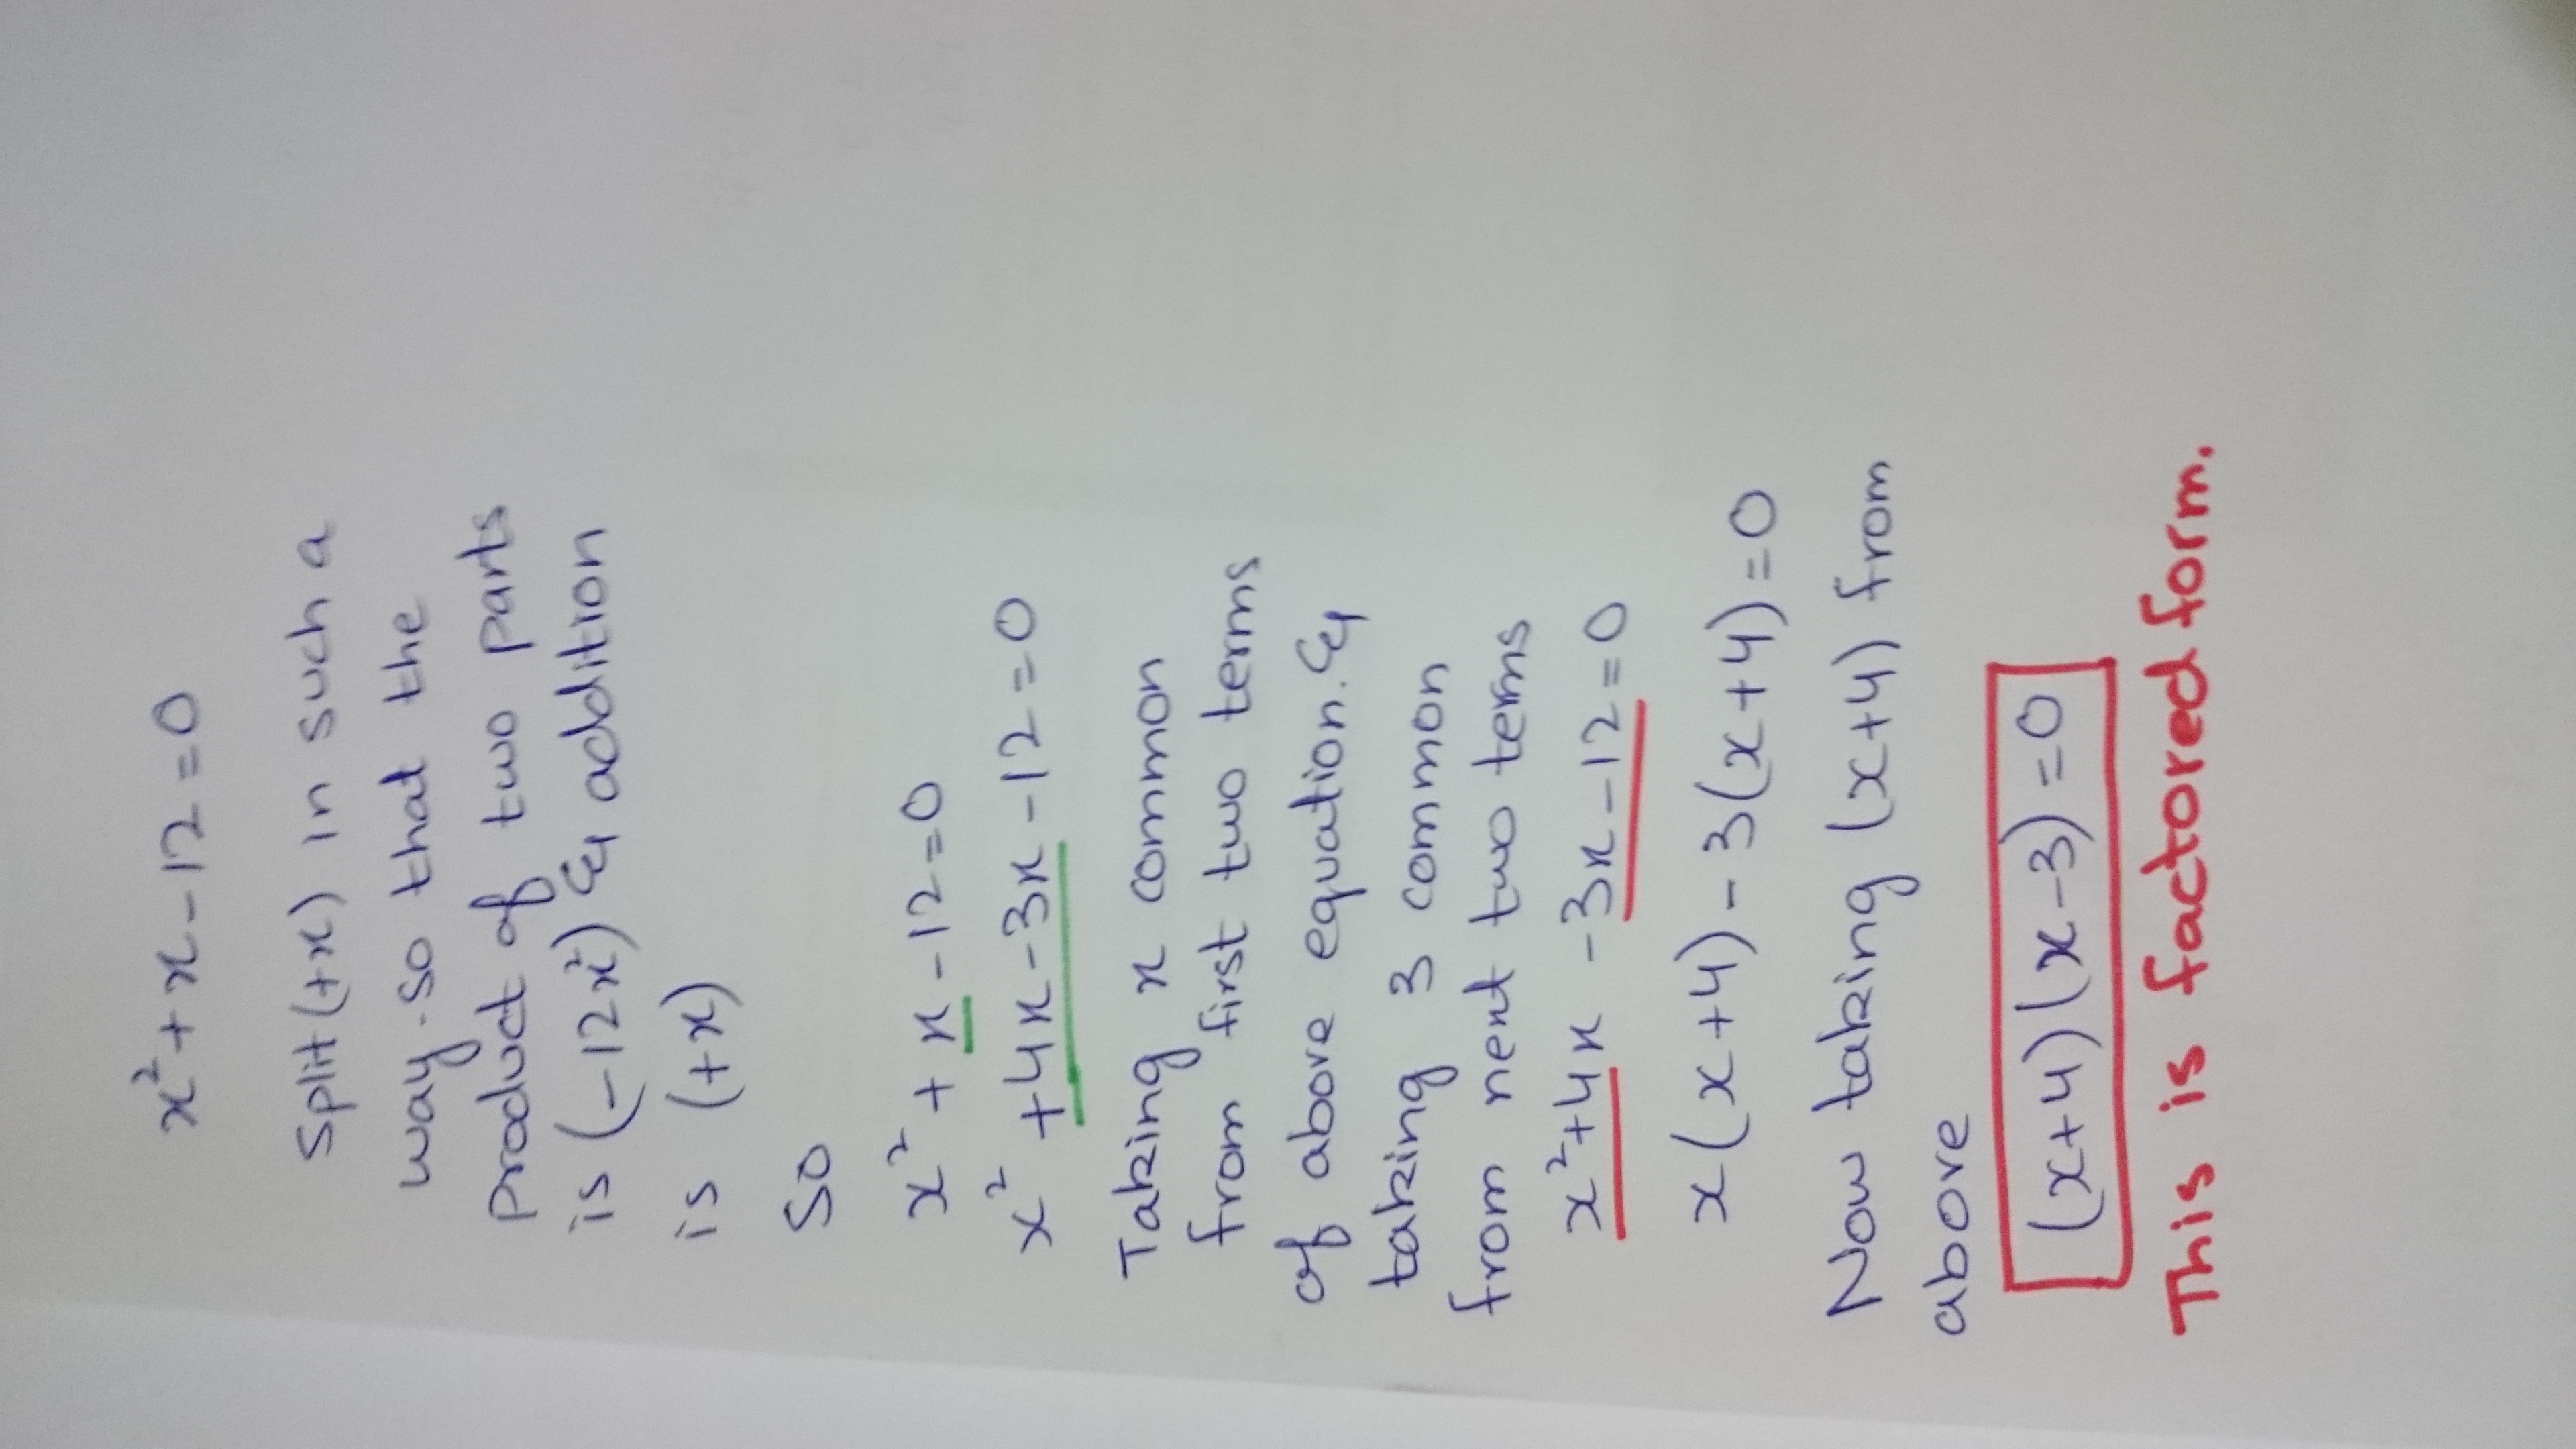 x²+x-12=0
Split(+x) in such a
way. so that the
product of two parts
is (-12x²) & addition
is (+x)
So
x² + x -12=0
x² +4x-3x-12=0
Taking x common
from first two terms
of above equation. &
taking 3 common
from next two terms
x²+4x -3x-12=0
x(x+4)-3(x+4)=0
Now taking (x+4) from
above
(x+4)(x-3)=0
This is factored form.